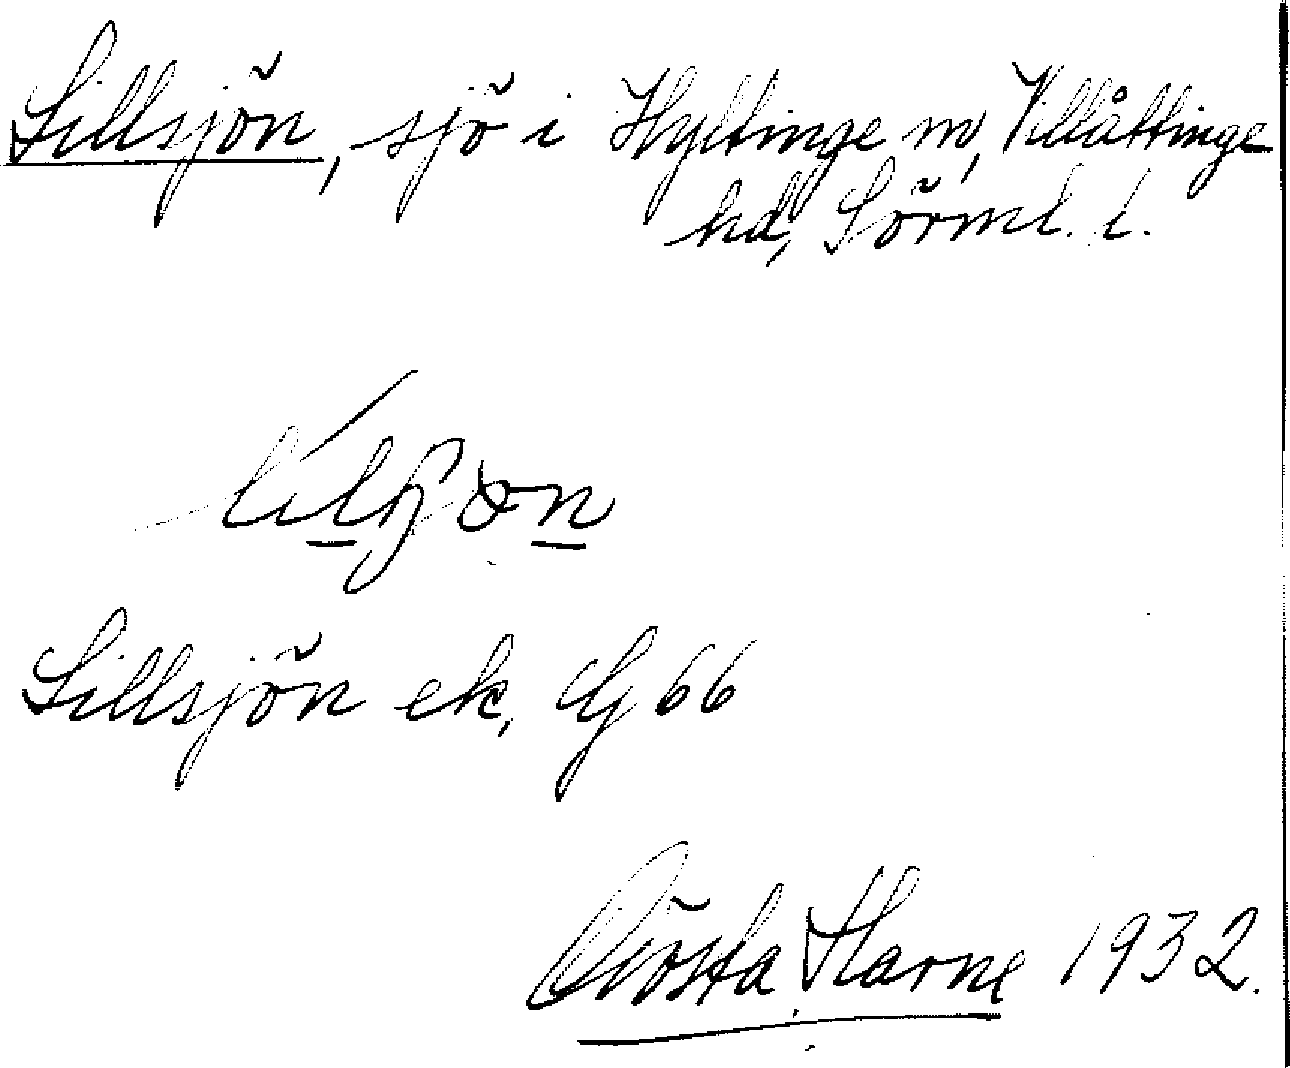 Lillsjön, sjö i Hyltinge sn, Villåttinge
hd, Sörml. l.
Lillsjön ek, G 66
Gösta Harne 1932.